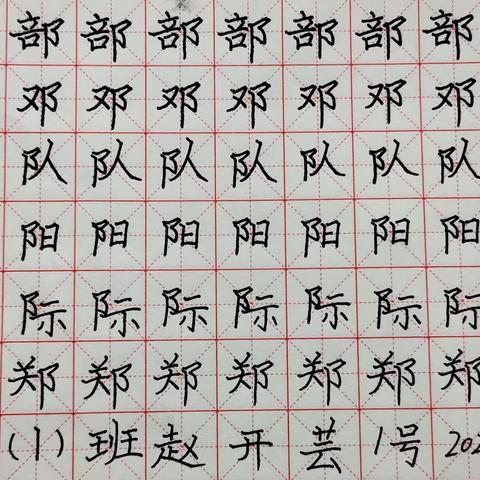 部部部部部部部
邓邓邓邓邓邓邓
队队队队队队队
阳阳阳阳阳阳阳
际际际际际际际
郑郑郑郑郑郑郑
(1)班赵开芸1号202